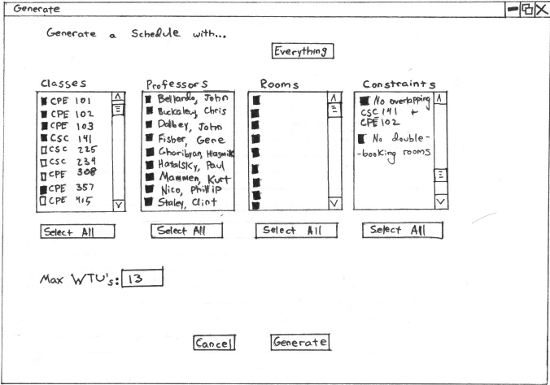 Generate
Generate a Schedule with...
Everything
Classes
CPE 101
CPE 102
CPE 103
CSC 141
CSC 225
CSC 234
CPE 308
CPE 357
CPE 415
Select All
Professors
Bellardo, John
Buckaley, Chris
Dalbey, John
Fisher, Gene
Ghoribyan, Hasmik
Hatalsky, Paul
Mammen, Kurt
Nico, Phillip
Staley, Clint
Select All
Rooms
Select All
Constraints
No overlapping
CSC 141 +
CPE 102
No double-
-booking rooms
Select All
Max WTU's: 13
Cancel
Generate